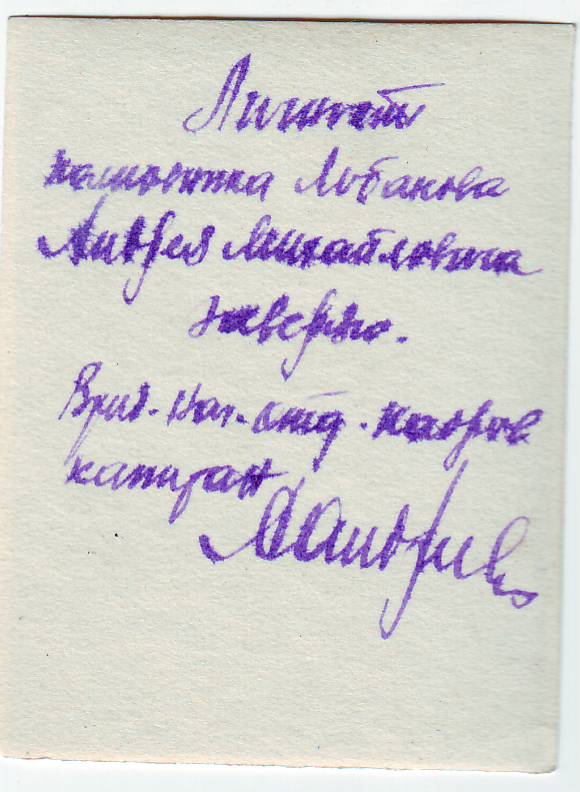 Личность
полковника Лобанова
Андрея Михайловича
заверяю.
Врид. нач. отд. кадров
капитан